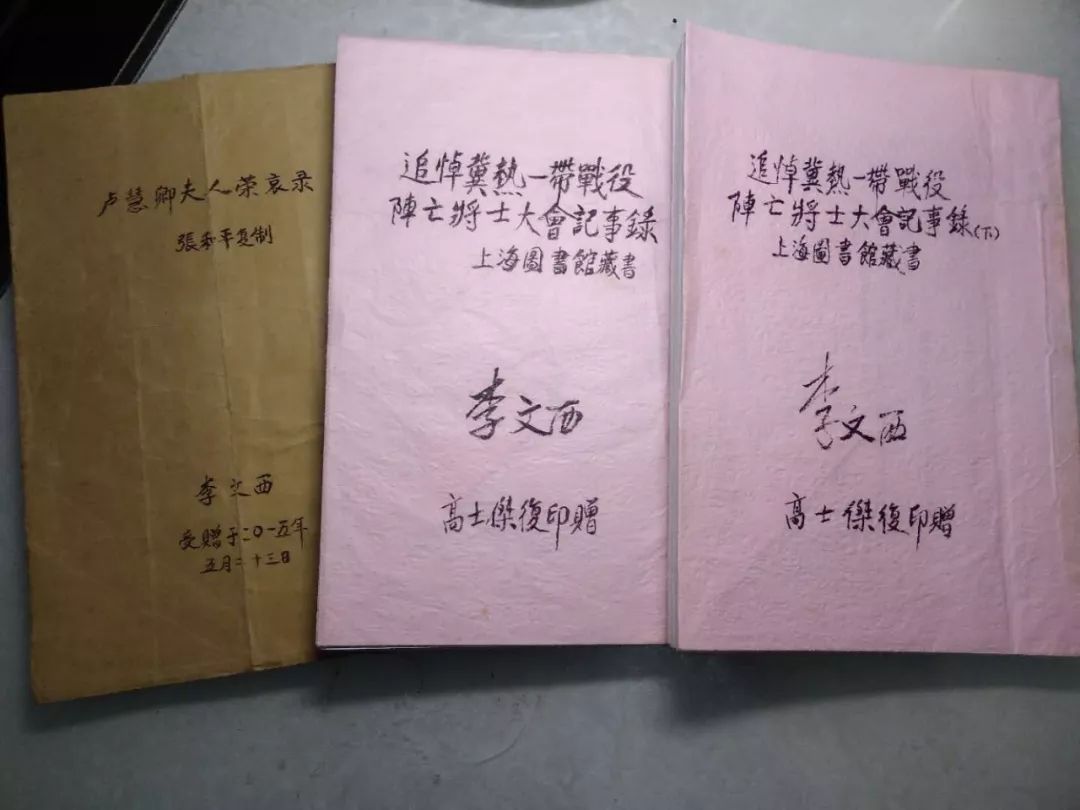 卢慧卿夫人荣哀录
張秀平复制
李文西
受赠于二〇一五年
五月二十三日
追悼冀熱一帶戰役
陣亡將士大會記事錄
上海圖書館藏書
李文西
高士傑復印贈
追悼冀熱一帶戰役
陣亡將士大會記事錄(下)
上海圖書館藏書
李文西
高士傑復印贈